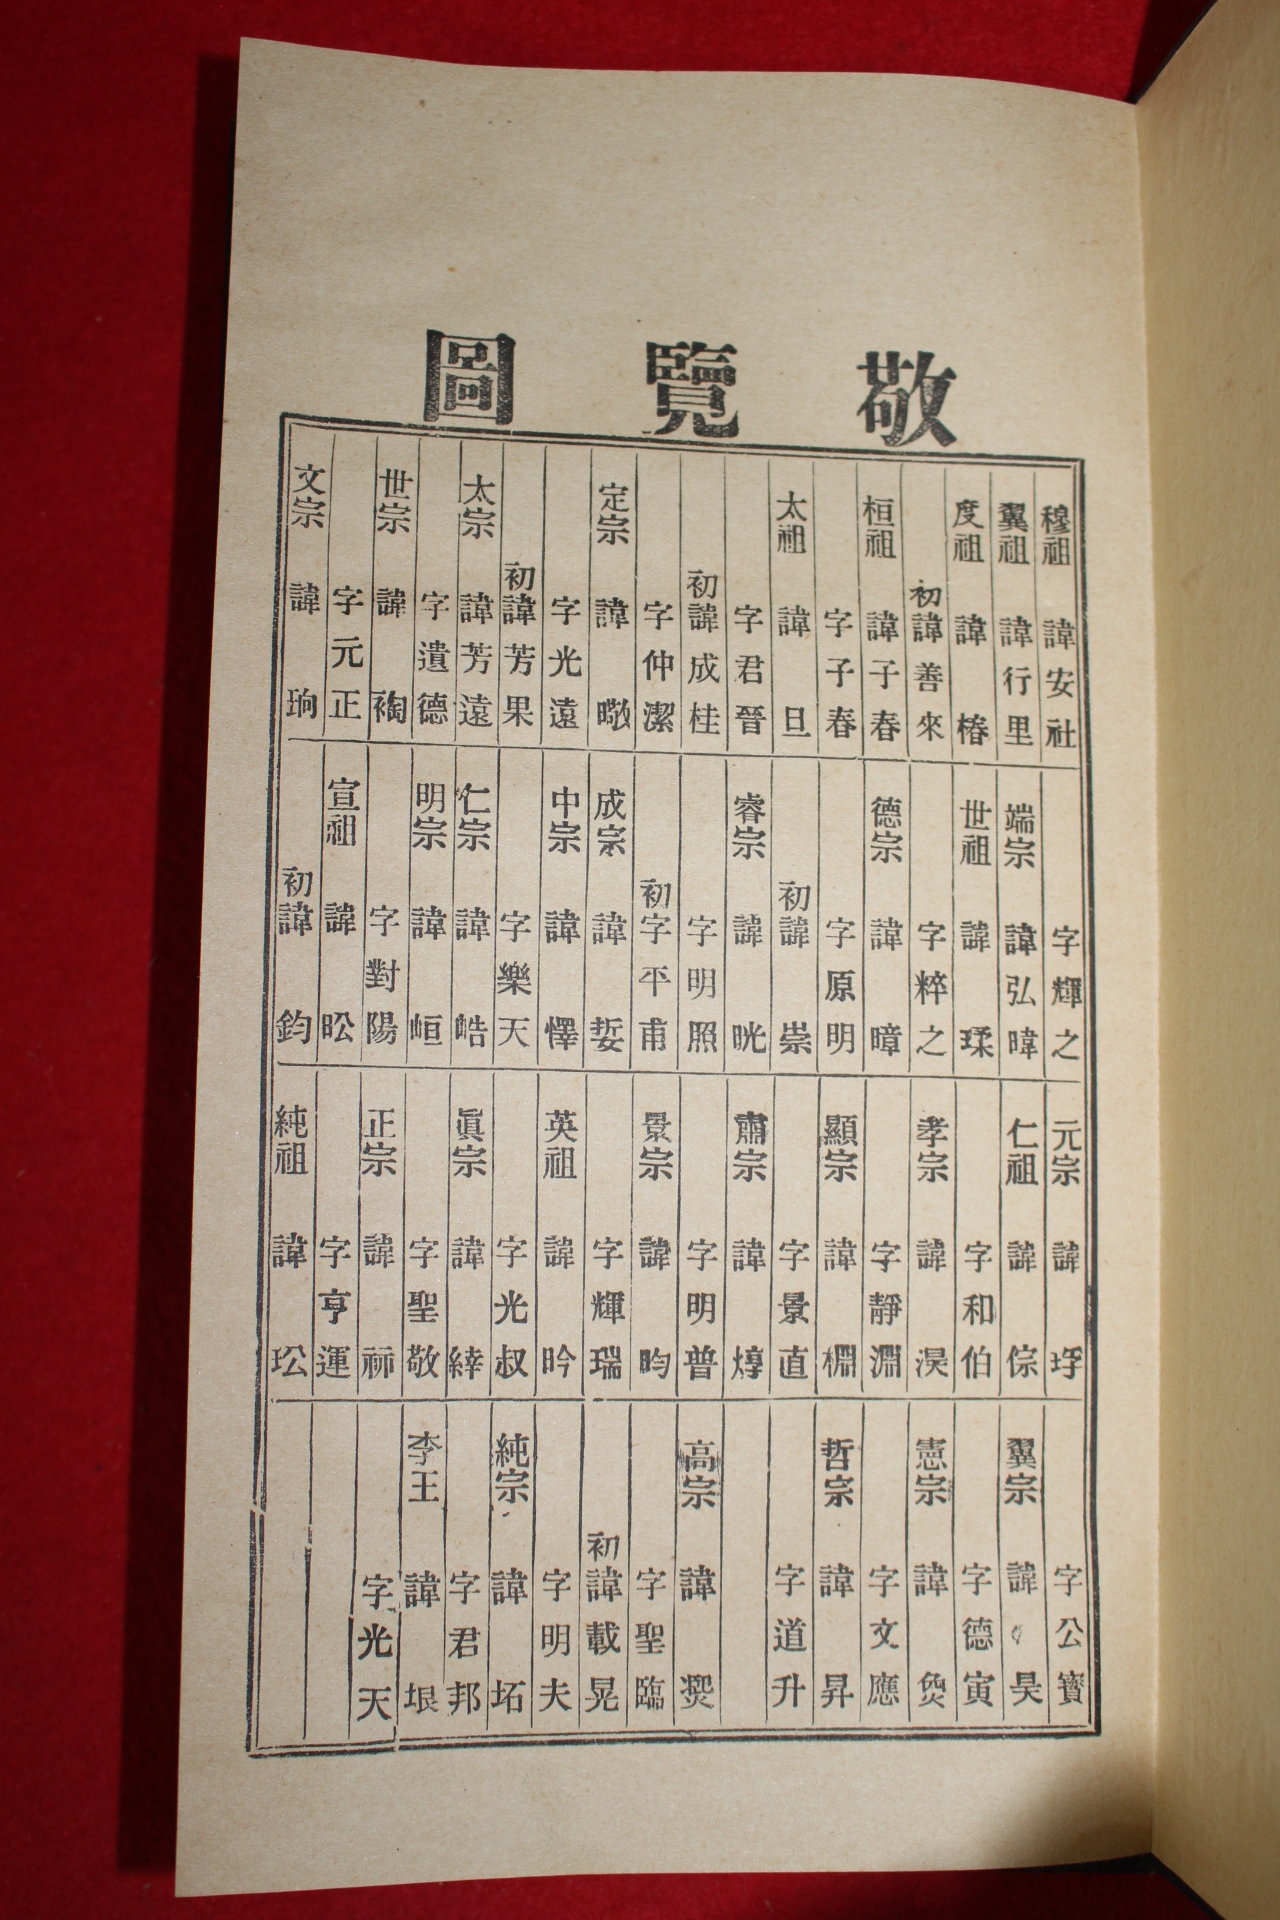 敬覽圖
穆祖 諱安社
翼祖 諱行里
度祖 諱椿
初諱善來
桓祖 諱子春
字子春
太祖 諱旦
字君晉
初諱成桂
字仲潔
定宗 諱曔
字光遠
初諱芳果
太宗 諱芳遠
字遺德
世宗 諱祹
字元正
文宗 諱珦
字輝之
端宗 諱弘暐
世祖 諱瑈
字粹之
德宗 諱暲
字原明
初諱崇
睿宗 諱晄
字明照
初字平甫
成宗 諱娎
中宗 諱懌
字樂天
仁宗 諱峼
明宗 諱峘
字對陽
宣祖 諱昖
初諱鈞
元宗 諱琈
仁祖 諱倧
字和伯
孝宗 諱淏
字靜淵
顯宗 諱棩
字景直
肅宗 諱焞
字明普
景宗 諱昀
字輝瑞
英祖 諱昑
字光叔
眞宗 諱緈
字聖敬
正宗 諱祘
字亨運
純祖 諱玜
字公寶
翼宗 諱旲
字德寅
憲宗 諱
字文應
哲宗 諱昇
字道升
高宗 諱㷩
字聖臨
初諱載晃
字明夫
純宗 諱坧
字君邦
李王 諱垠
字光天